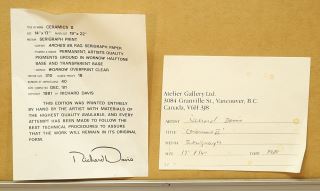 TITLE CERAMICS II
SIZE 14"x 17" PAPER 19"x 22"
MEDIUM SERIGRAPH PRINT
SUPPORT ARCHES 88 RAG SERIGRAPH PAPER
PIGMENTS PERMANENT, ARTIST'S QUALITY
PIGMENTS GROUND IN WORNOW HALFTONE
BASE AND TRANSPARENT BASE
WORNOW OVERPRINT CLEAR
EDITION 210 COLORS 18
40
DATE DEC. '81
COPYRIGHT © 1981 BY RICHARD DAVIS
THIS EDITION WAS PRINTED ENTIRELY
BY HAND BY THE ARTIST WITH MATERIALS OF
THE HIGHEST QUALITY AVAILABLE, AND EVERY
ATTEMPT HAS BEEN MADE TO FOLLOW THE
BEST TECHNICAL PROCEDURES TO ASSURE
THAT THE WORK WILL REMAIN IN ITS ORIGINAL
FORM.
Richard Davis
Atelier Gallery Ltd.
3084 Granville St., Vancouver, B.C.
Canada, V6H 3J8
ARTIST Richard Davis
TITLE Ceramics II
Serigraph